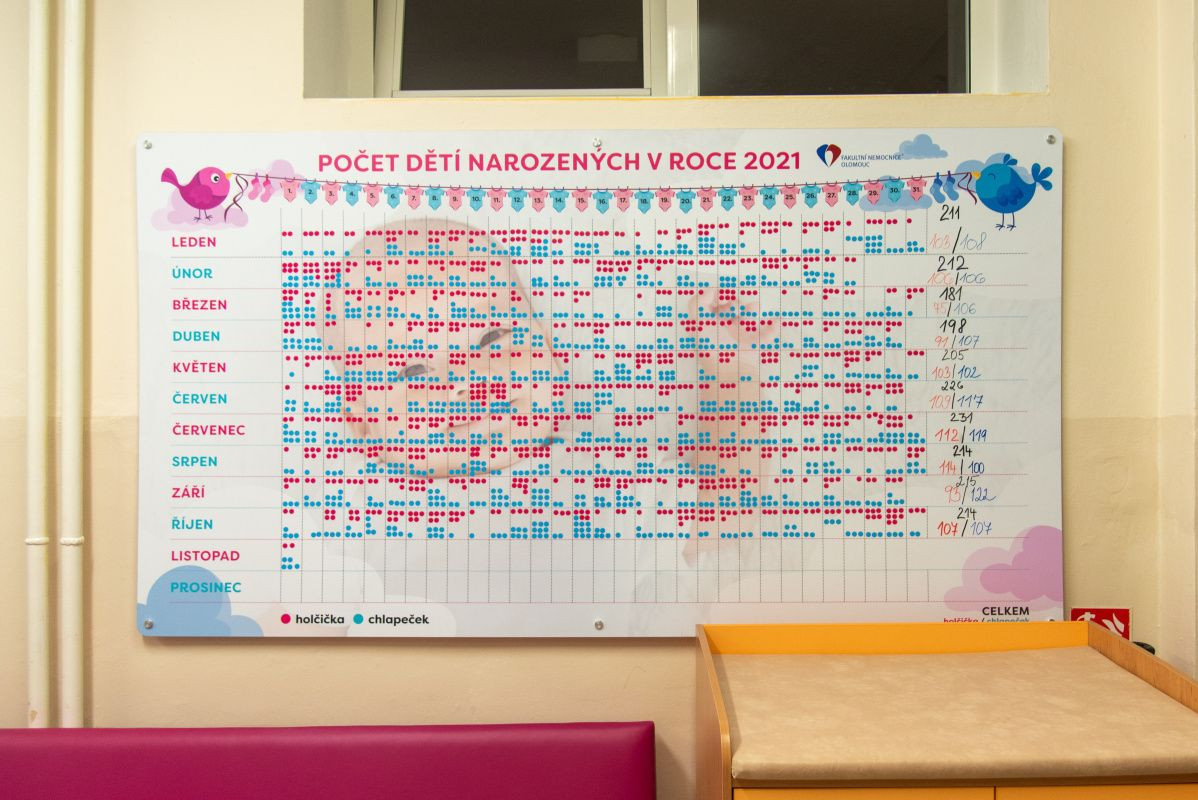 POČET DĚTÍ NAROZENÝCH V ROCE 2021
FAKULTNÍ NEMOCNICE
OLOMOUC
1. 2. 3. 4. 5. 6. 7. 8. 9. 10. 11. 12. 13. 14. 15. 16. 17. 18. 19. 20. 21. 22. 23. 24. 25. 26. 27. 28. 29. 30. 31.
LEDEN 211
103/108
ÚNOR 212
106/106
BŘEZEN 181
75/106
DUBEN 198
91/107
KVĚTEN 205
103/102
ČERVEN 226
109/117
ČERVENEC 231
112/119
SRPEN 214
114/100
ZÁŘÍ 215
93/122
ŘÍJEN 214
107/107
LISTOPAD
PROSINEC
holčička chlapeček
CELKEM
holčička / chlapeček